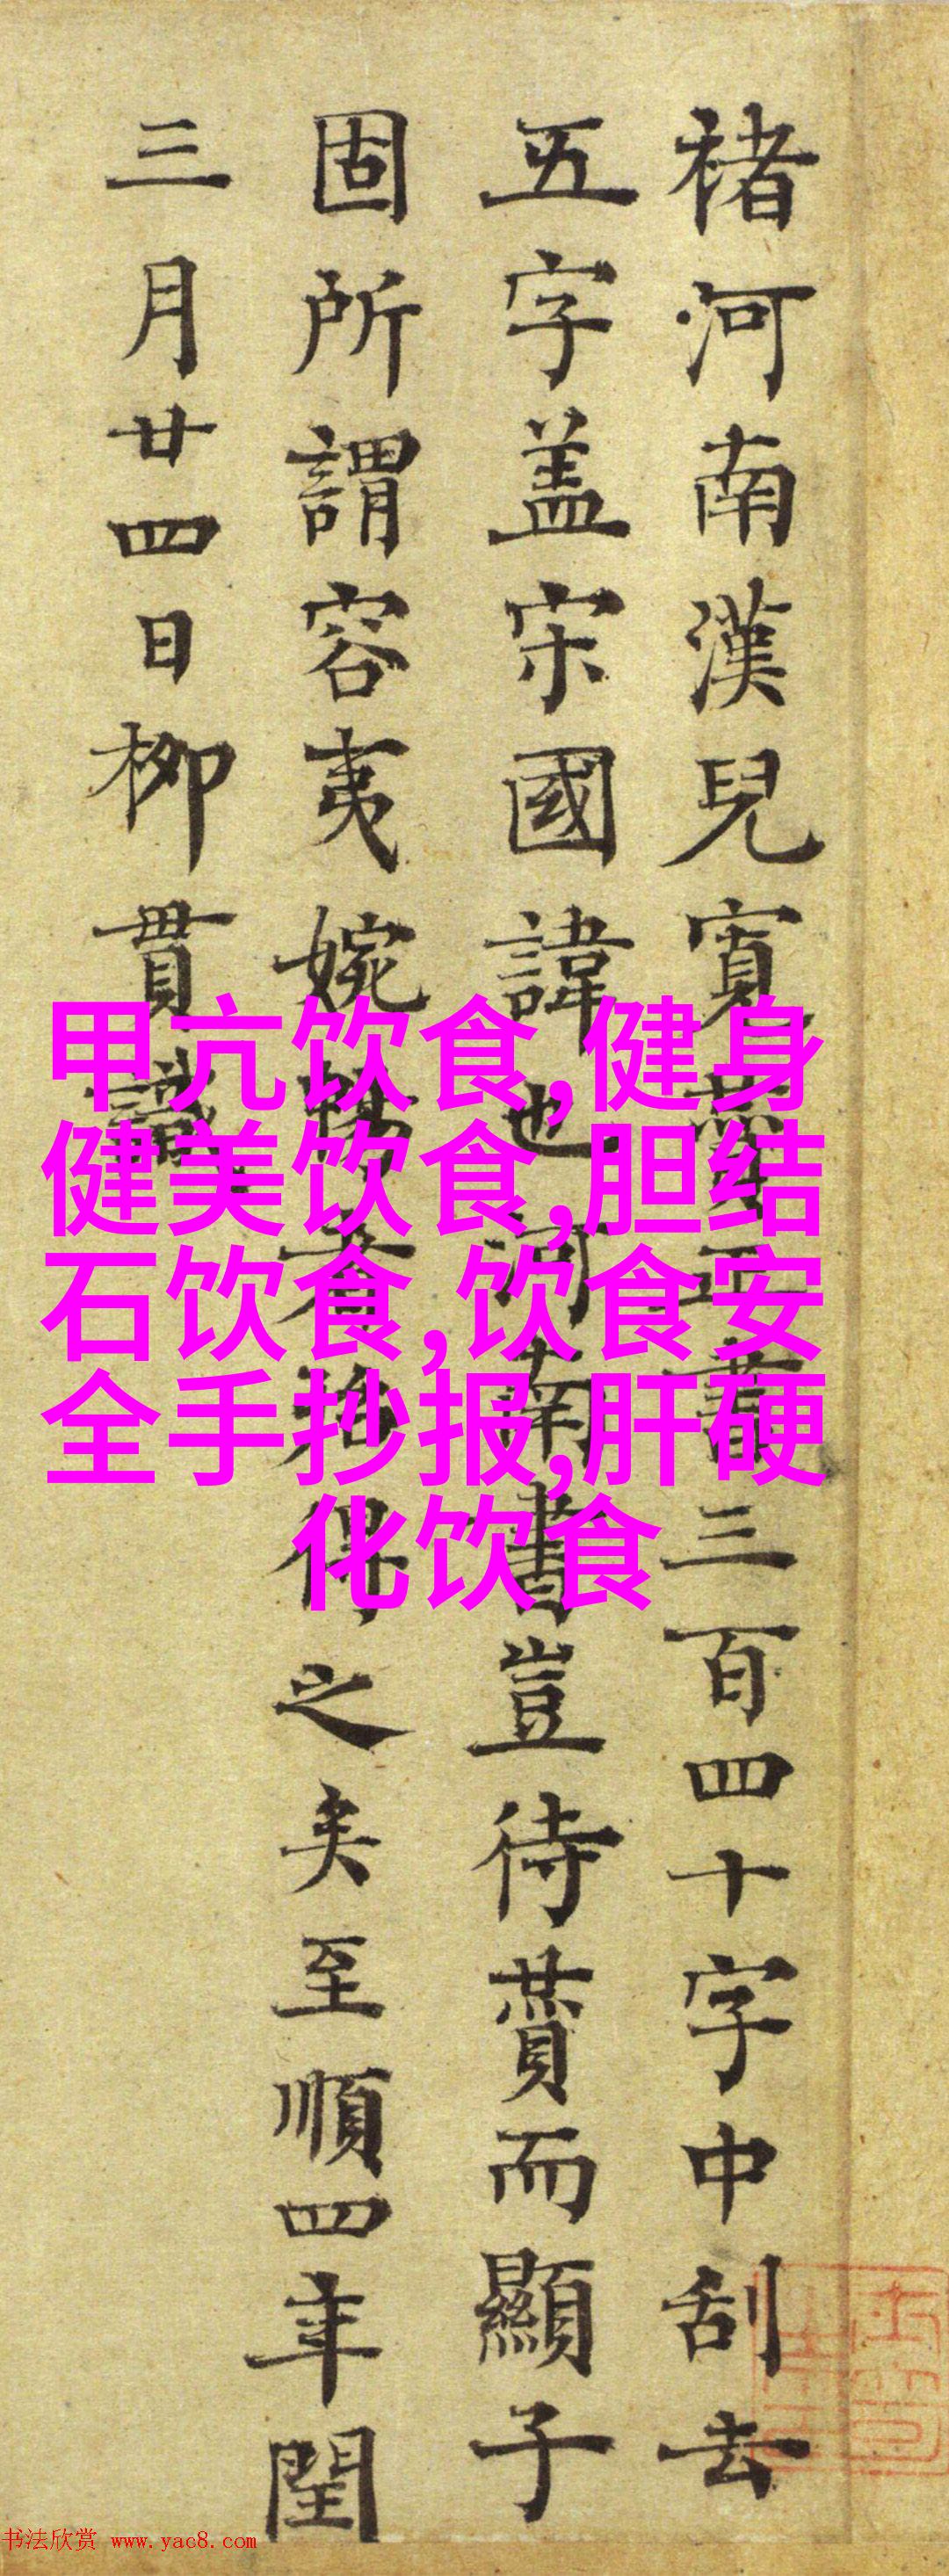 褚河南漢兒寬贊正書三百四十字中刮去
五字盖宋國諱也河南書豈待贊而顯子
固所謂容夷婉暢者殆得之矣至順四年閏
三月廿四日柳貫識
甲亢饮食,健身
健美饮食,胆结
石饮食,饮食安
全手抄报,肝硬
化饮食
书法欣赏 www.yac8.com